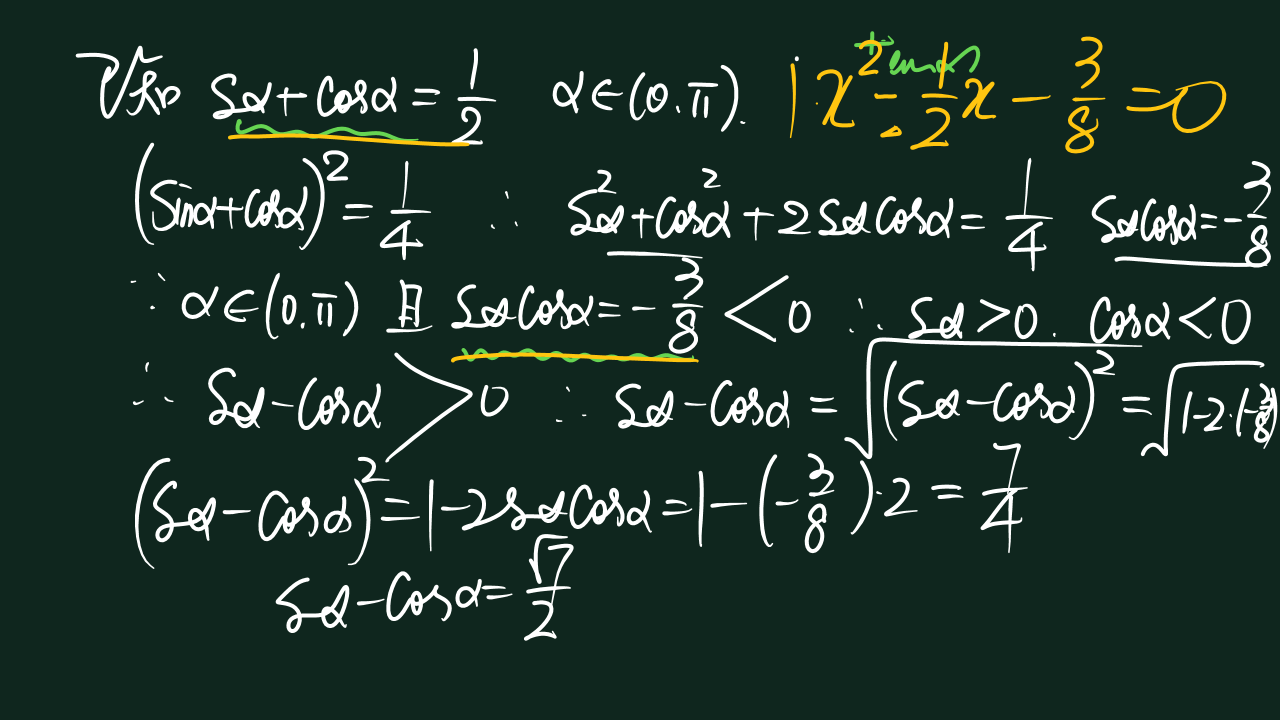 已知 sα+cosα=1/2 α∈(0.π). tanα 1·x²-1/2x-3/8=0
(sinα+cosα)²=1/4 ∴ s²α+cos²α+2sαcosα=1/4 sαcosα=-3/8
∵ α∈(0.π) 且 sαcosα=-3/8<0 ∴ sα>0. cosα<0
∴ sα-cosα>0 ∴ sα-cosα=√(sα-cosα)²=√1-2·(-3/8)
(sα-cosα)²=1-2sαcosα=1-(-3/8)·2=7/4
sα-cosα=√7/2